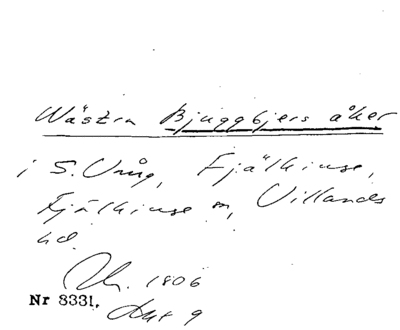 Wästra Bjuggbjers åker
i S. Vång, Fjälkinge,
Fjälkinge sn, Villands
hd.
1806
Nr 8331. Akt 9